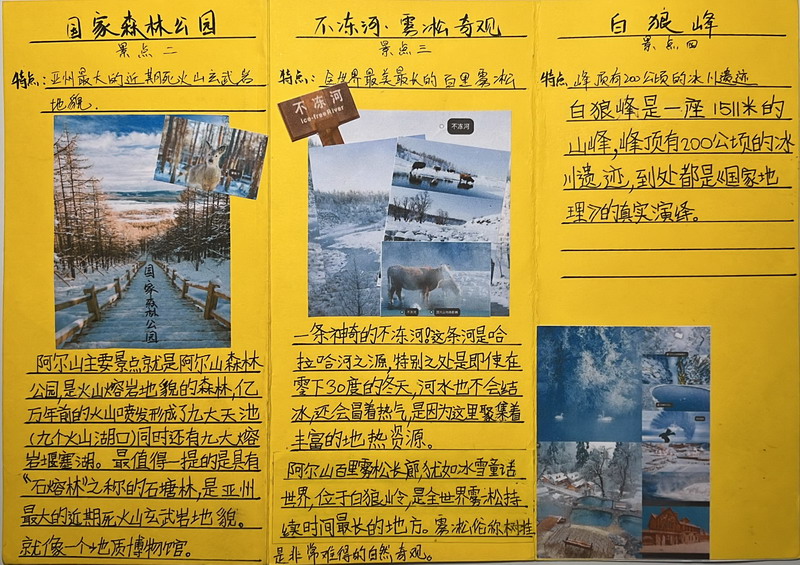 国家森林公园
景点二
特点:亚州最大的近期死火山玄武岩
地貌.
国家森林公园
阿尔山主要景点就是阿尔山森林
公园,是火山熔岩地貌的森林,亿
万年前的火山喷发形成了九大天池
(九个火山湖口)同时还有九大熔
岩堰塞湖。最值得一提的是具有
“石熔林”之称的石塘林,是亚州
最大的近期死火山玄武岩地貌。
就像一个地质博物馆。
不冻河·雾凇奇观
景点三
特点:全世界最美最长的百里雾凇
不冻河
Ice-free River
不冻河
一条神奇的不冻河?这条河是哈
拉哈河之源,特别之处是即使在
零下30度的冬天,河水也不会结
冰,还会冒着热气,是因为这里聚集着
丰富的地热资源。
阿尔山百里雾凇长廊,犹如冰雪童话
世界,位于白狼岭,是全世界雾凇持
续时间最长的地方。雾凇俗称树挂
是非常难得的自然奇观。
白狼峰
景点四
特点:峰顶有200公顷的冰川遗迹
白狼峰是一座1511米的
山峰,峰顶有200公顷的冰
川遗迹,到处都是《国家地
理》的真实演绎。